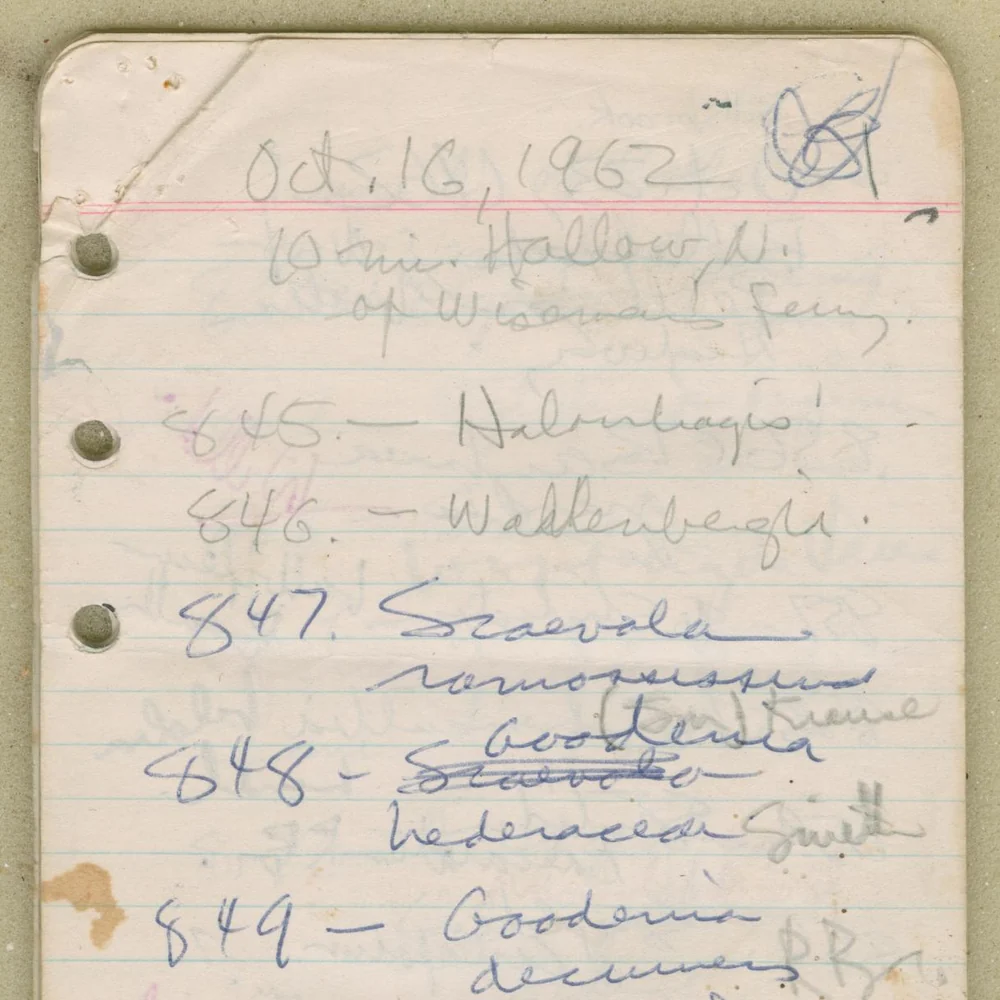 Oct. 16, 1962
10 mi. Hallow, N.
of Wiseman's Ferry.
845. — Halorrhagis
846. — Wahlenbergia.
847. Scaevola
ramosissima
(Sm) Krause
Goodenia
848 - Scaevola
hederacea Smith
849 — Goodenia
decurrens R Br.